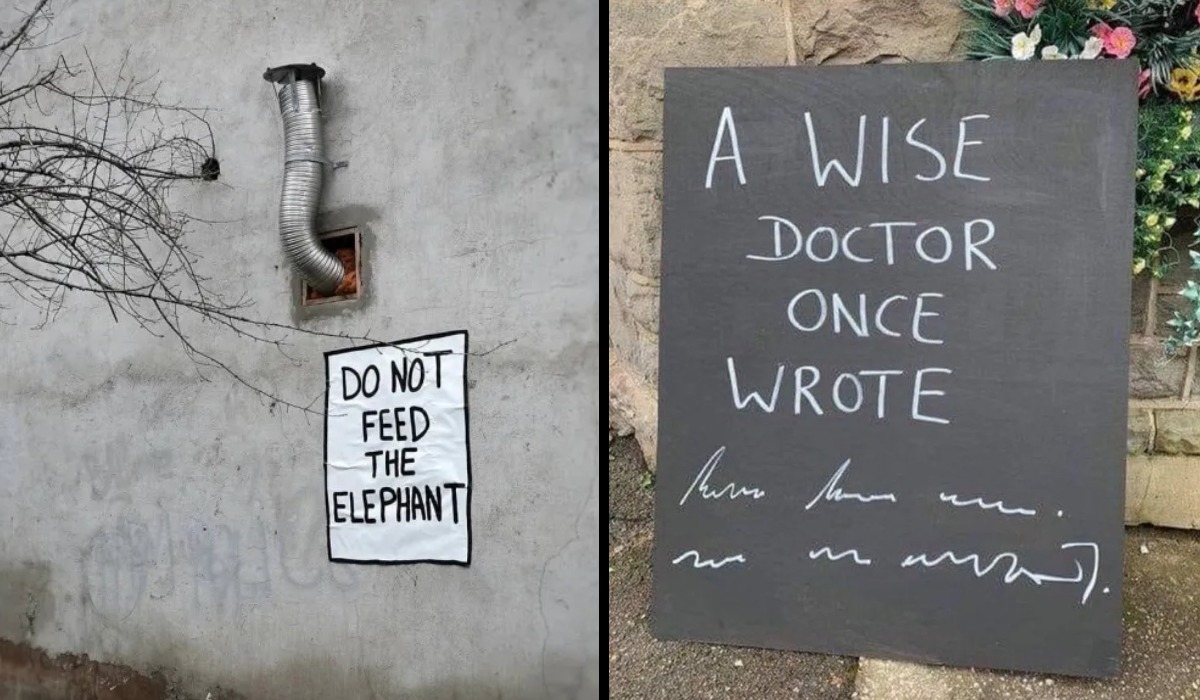 DO NOT
FEED
THE
ELEPHANT
A WISE
DOCTOR
ONCE
WROTE